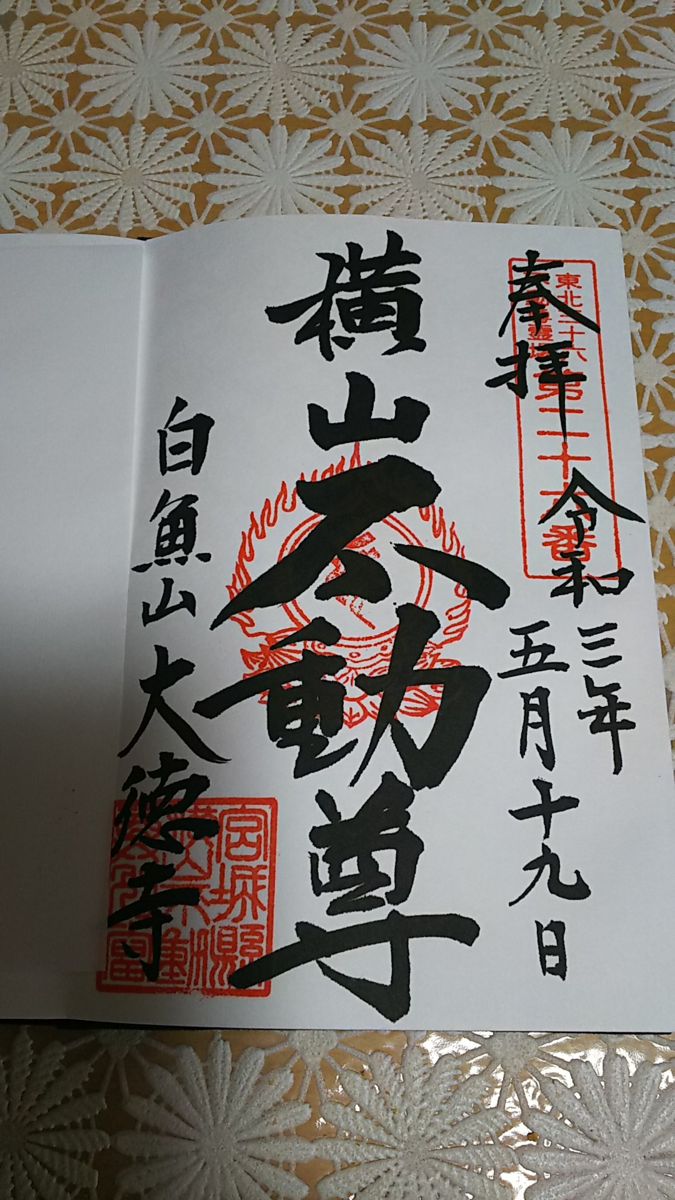 奉拝
東北三十六
第二十六番
令和三年
五月十九日
横山不動尊
白魚山大徳寺
宮城縣